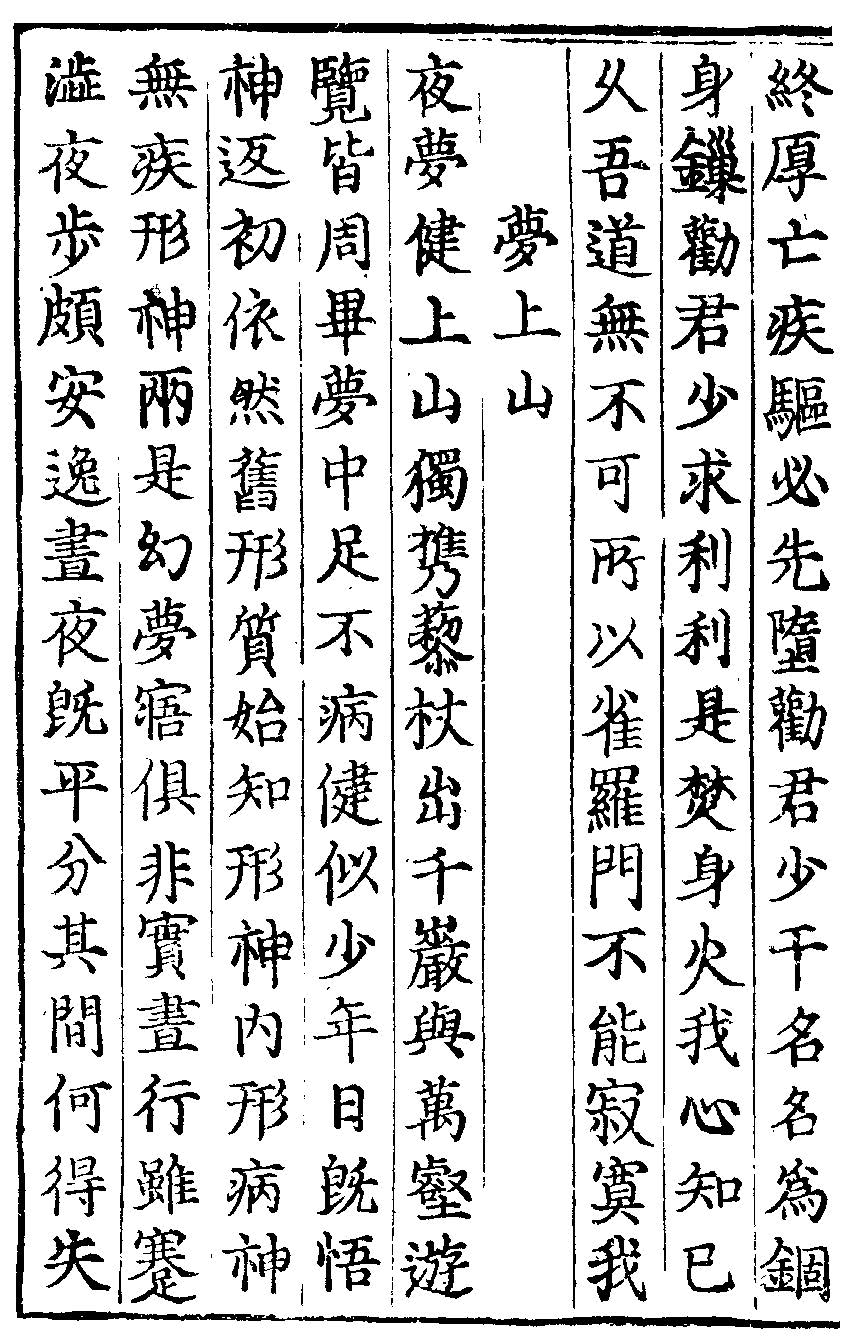 終厚亡疾驅必先墮勸君少干名名爲錮
身鏁勸君少求利利是焚身火我心知已
乆吾道無不可所以雀羅門不能寂寞我
夢上山
夜夢健上山獨携藜杖出千巖與萬壑遊
覽皆周畢夢中足不病健似少年日旣悟
神返初依然舊形質始知形神內形病神
無疾形神兩是幻夢寤俱非實晝行雖蹇
澁夜步頗安逸晝夜旣平分其間何得失